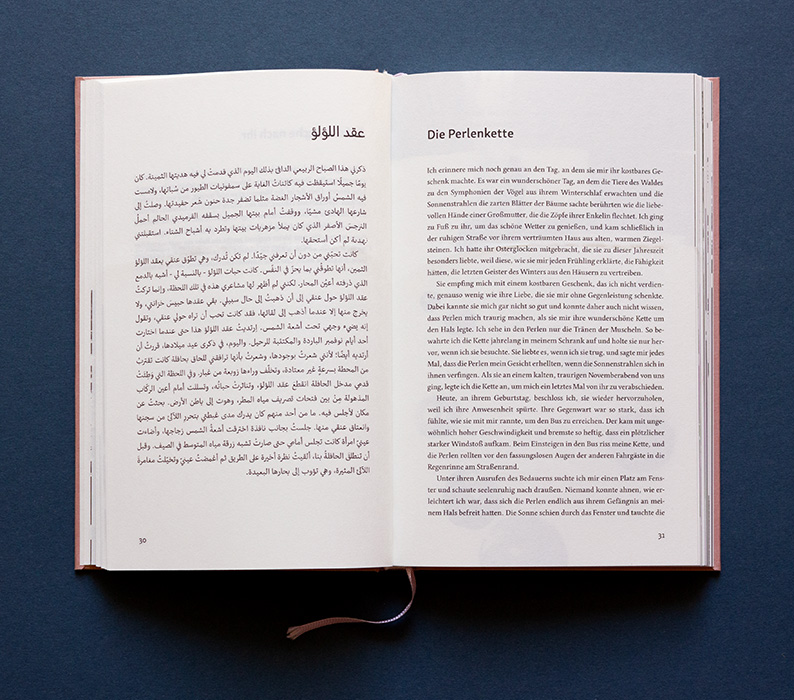 عقد اللؤلؤ
ذكرني هذا الصباح الربيعي الدافئ بذلك اليوم الذي قدمتُ لي فيه هديتها الثمينة. كان
يومًا جميلًا استيقظت فيه كائناتُ الغابة على سمفونيات الطيور من سُباتها، ولامست
فيه الشمسُ أوراق الأشجار الغضة مثلما تضفر جدة حنون شعر حفيدتها. وصلتُ إلى
شارعها الهادئ مشيًا، ووقفتُ أمام بيتها الجميل بسقفه القرميدي الحالم أحملُ
النرجس الأصفر الذي كان يملأ مزهريات بيتها وتطرد به أشباح الشتاء. استقبلتني
بهدية لم أكن أستحقها.
كانت تحبّني من دون أن تعرفني جيّدًا. لم تكن تُدرك، وهي تطوّق عنقي بعقد اللؤلؤ
الثمين، أنها تطوقني بما يحزّ في النفْس. كانت حبات اللؤلؤ - بالنسبة لي - أشبه بالدمع
الذي ذرفته أعيُن المحار. لكنني لم أظهر لها مشاعري هذه في تلك اللحظة، وإنما تركتُ
عقد اللؤلؤ حول عنقي إلى أن ذهبتُ إلى حال سبيلي. بقي عقدها حبيسَ خزانتي، ولا
يخرج منها إلا عندما أذهب إلى لقائها، فقد كانت تحب أن تراه حولي عنقي، وتقول
إنه يضيء وجهي تحت أشعة الشمس. ارتديتُ عقد اللؤلؤ هذا حتى عندما اختارت
أحد أيام نوفمبر الباردة والمكتئبة للرحيل. واليوم، في ذكرى عيد ميلادها، قررتُ أن
أرتديه أيضًا؛ لأنني شعرتُ بوجودها، وشعرتُ بأنها ترافقني للحاق بحافلة كانت تقتربُ
من المحطة بسرعةٍ غير معتادة، وتخلّف وراءها زوبعة من غبار. وفي اللحظة التي وطِئتْ
قدمي مدخل الحافلة انقطع عقد اللؤلؤ، وتناثرتْ حباتُه، وتسللت أمام أعين الركّاب
المذهولة مِنْ بين فتحات تصريف مياه المطر، وهوت إلى باطن الأرض. بحثتُ عن
مكان لأجلس فيه. ما من أحد منهم كان يدرك مدى غبطتي بتحرر اللآلئ من سجنها
وانعتاق عنقي منها. جلستُ بجانب نافذة اخترقت أشعةُ الشمس زجاجها، وأضاءت
عينيْ امرأة كانت تجلس أمامي حتى صارتْ تشبه زرقة مياه المتوسط في الصيف. وقبل
أن تنطلق الحافلةُ بنا، ألقيتُ نظرة أخيرة على الطريق ثم أغمضتُ عينيّ وتخيّلتُ مغامرة
اللآلئ المثيرة، وهي تؤوب إلى بحارها البعيدة.
30
Die Perlenkette
Ich erinnere mich noch genau an den Tag, an dem sie mir ihr kostbares Ge-
schenk machte. Es war ein wunderschöner Tag, an dem die Tiere des Waldes
zu den Symphonien der Vögel aus ihrem Winterschlaf erwachten und die
Sonnenstrahlen die zarten Blätter der Bäume sachte berührten wie die liebe-
vollen Hände einer Großmutter, die die Zöpfe ihrer Enkelin flechtet. Ich ging
zu Fuß zu ihr, um das schöne Wetter zu genießen, und kam schließlich in
der ruhigen Straße vor ihrem verträumten Haus aus alten, warmen Ziegel-
steinen. Ich hatte ihr Osterglöcken mitgebracht, die sie zu dieser Jahreszeit
besonders liebte, weil diese, wie sie mir jeden Frühling erklärte, die Fähigkeit
hätten, die letzten Geister des Winters aus den Häusern zu vertreiben.
Sie empfing mich mit einem kostbaren Geschenk, das ich nicht verdien-
te, genauso wenig wie ihre Liebe, die sie mir ohne Gegenleistung schenkte.
Dabei kannte sie mich gar nicht so gut und konnte daher auch nicht wissen,
dass Perlen mich traurig machen, als sie mir ihre wunderschöne Kette um
den Hals legte. Ich sehe in den Perlen nur die Tränen der Muscheln. So be-
wahrte ich die Kette jahrelang in meinem Schrank auf und holte sie nur her-
vor, wenn ich sie besuchte. Sie liebte es, wenn ich sie trug, und sagte mir jedes
Mal, dass die Perlen mein Gesicht erhellten, wenn die Sonnenstrahlen sich in
ihnen verfingen. Als sie an einem kalten, traurigen Novemberabend von uns
ging, legte ich die Kette an, um mich ein letztes Mal von ihr zu verabschieden.
Heute, an ihrem Geburtstag, beschloss ich, sie wieder hervorzuholen,
weil ich ihre Anwesenheit spürte. Ihre Gegenwart war so stark, dass ich
fühlte, wie sie mit mir rannte, um den Bus zu erreichen. Der kam mit unge-
wöhnlich hoher Geschwindigkeit und bremste so heftig, dass ein plötzlicher
starker Windstoß aufkam. Beim Einsteigen in den Bus riss meine Kette, und
die Perlen rollten vor den fassungslosen Augen der anderen Fahrgäste in die
Regenrinne am Straßenrand.
Unter ihren Ausrufen des Bedauerns suchte ich mir einen Platz am Fens-
ter und schaute seelenruhig nach draußen. Niemand konnte ahnen, wie er-
leichtert ich war, dass sich die Perlen endlich aus ihrem Gefängnis an mei-
nem Hals befreit hatten. Die Sonne schien durch das Fenster und tauchte die
31